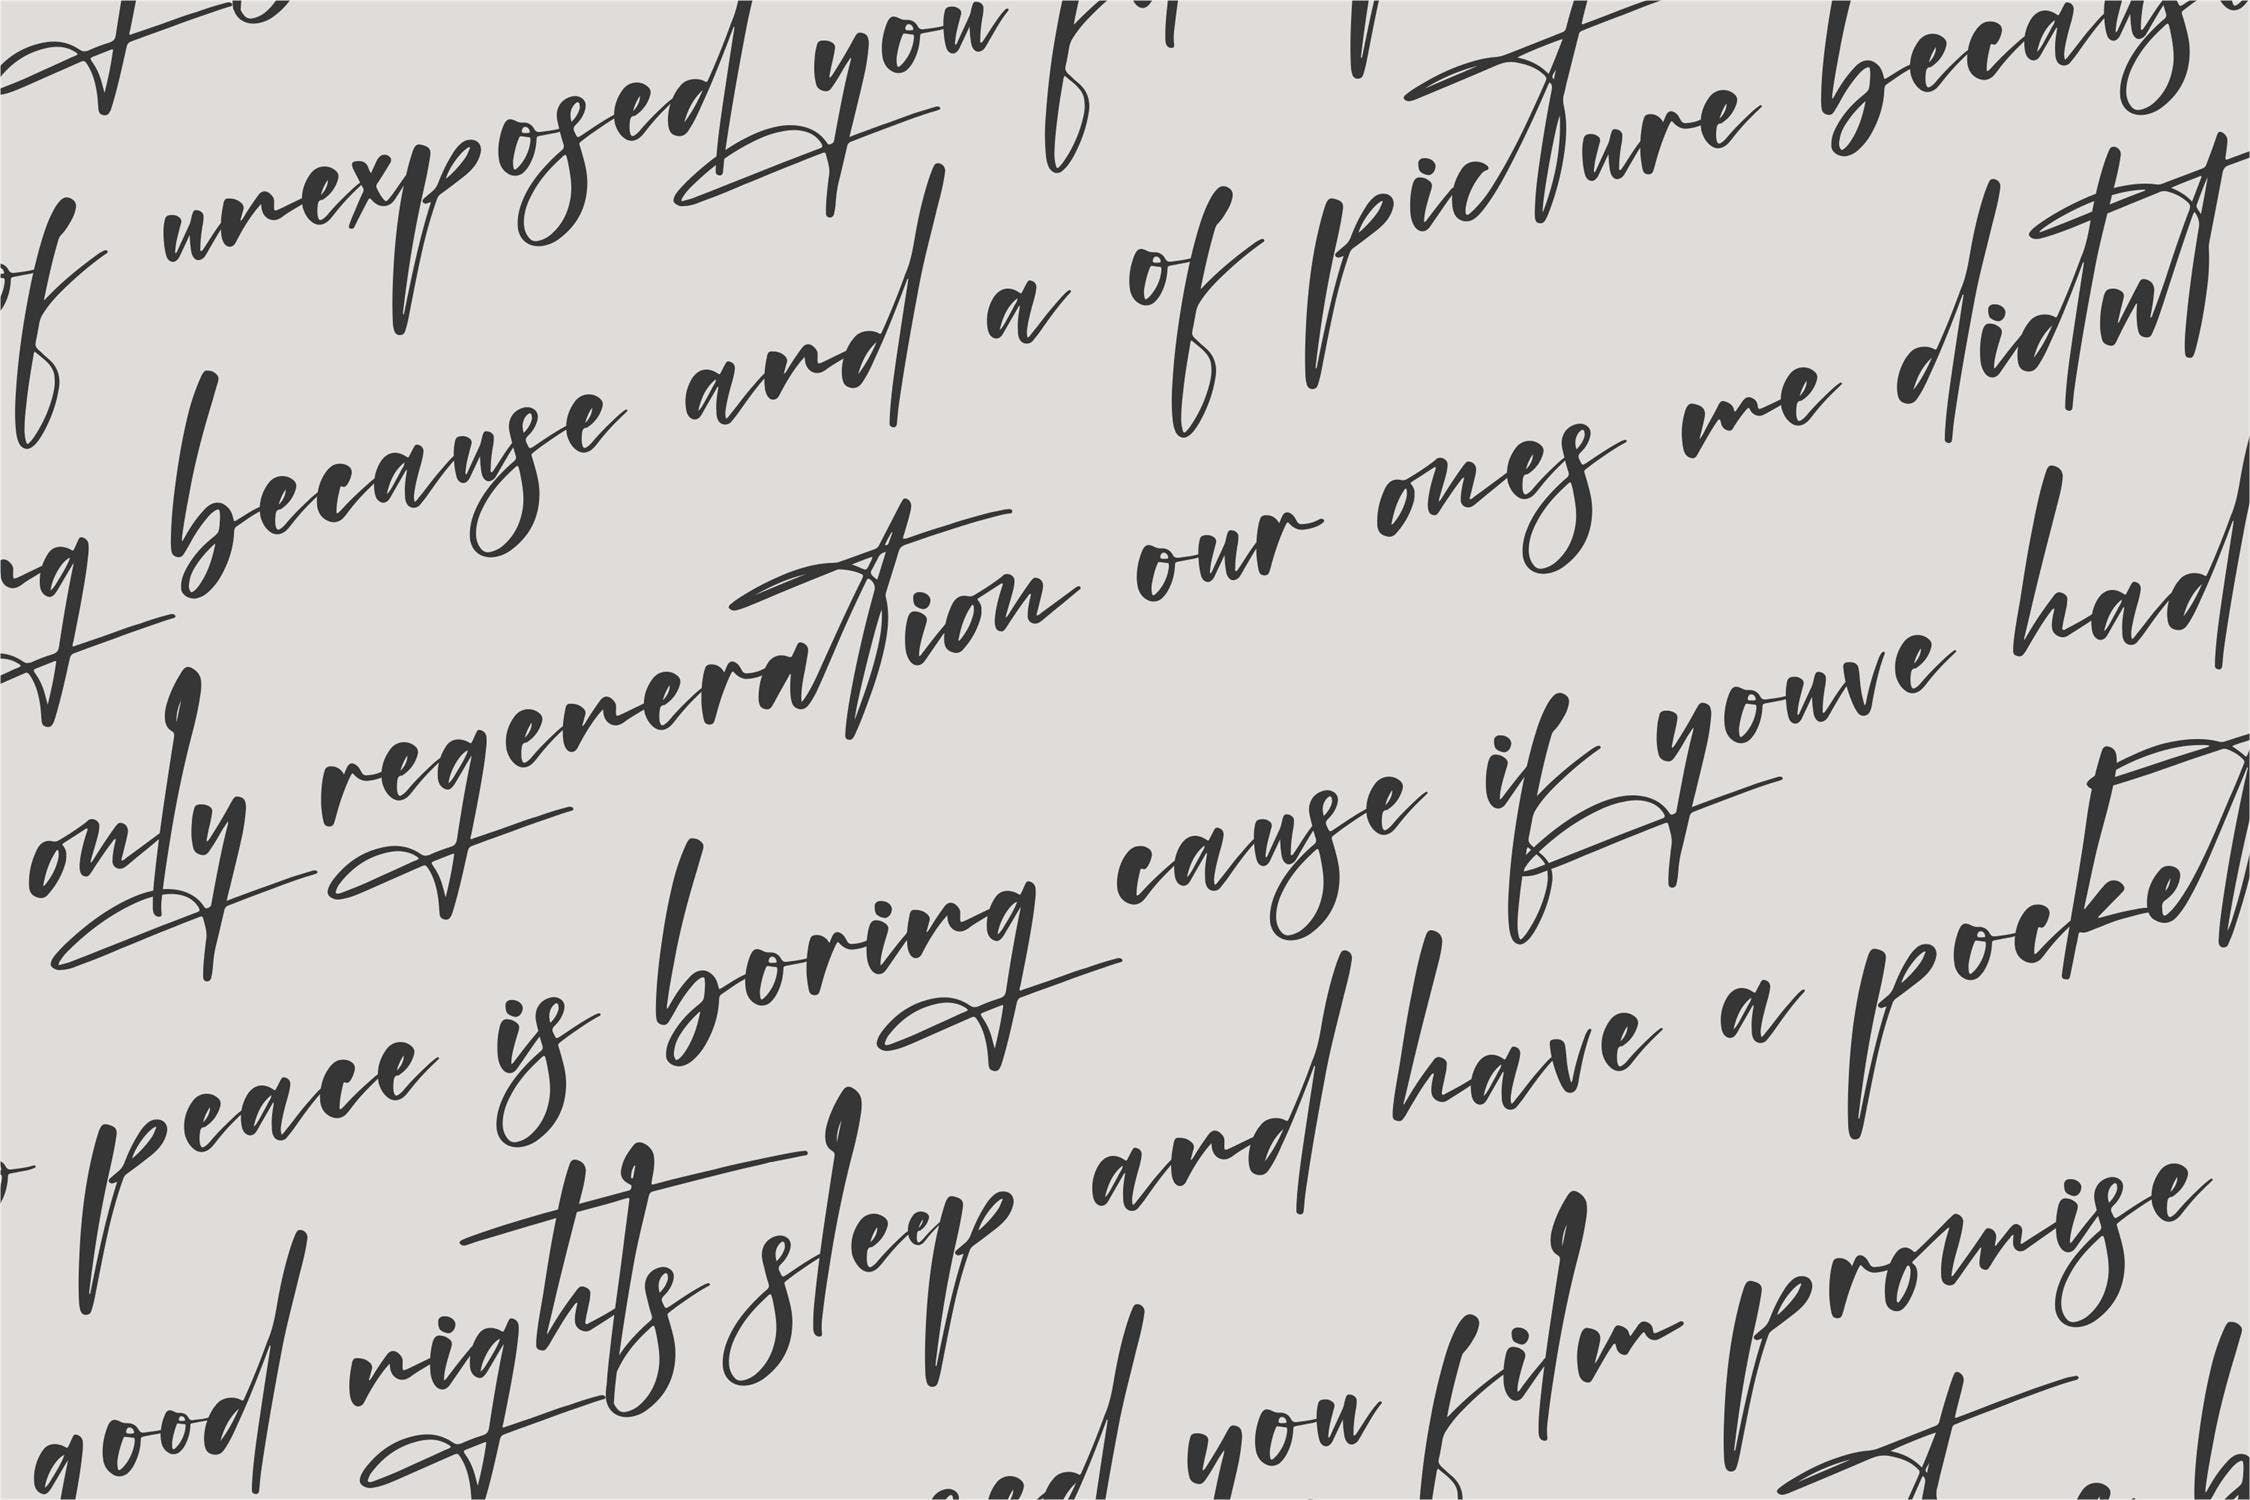 of unexposed you
because and a of picture because
only regeneration our ones me didnt
peace is boring cause if youve had
good nights sleep and have a pocket
you film promise